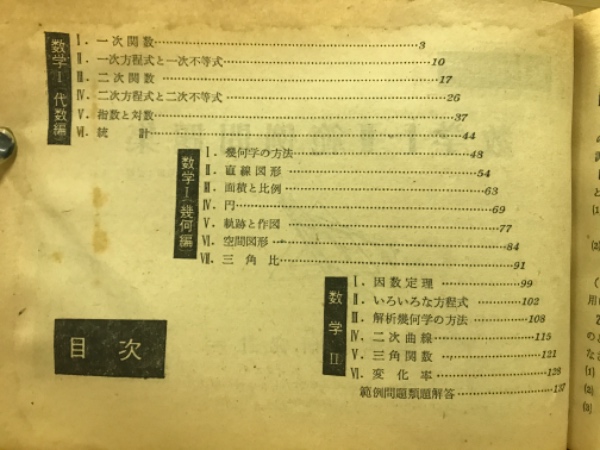 数学Ⅰ(代数編)
Ⅰ. 一次関数…3
Ⅱ. 一次方程式と一次不等式…10
Ⅲ. 二次関数…17
Ⅳ. 二次方程式と二次不等式…26
Ⅴ. 指数と対数…37
Ⅵ. 統計…44
数学Ⅰ(幾何編)
Ⅰ. 幾何学の方法…48
Ⅱ. 直線図形…54
Ⅲ. 面積と比例…63
Ⅳ. 円…69
Ⅴ. 軌跡と作図…77
Ⅵ. 空間図形…84
Ⅶ. 三角比…91
数学Ⅱ
Ⅰ. 因数定理…99
Ⅱ. いろいろな方程式…102
Ⅲ. 解析幾何学の方法…108
Ⅳ. 二次曲線…115
Ⅴ. 三角関数…121
Ⅵ. 変化率…128
範例問題類題解答…137
目次
(1)
(2)
用
の
な
(1)
(2)
(3)